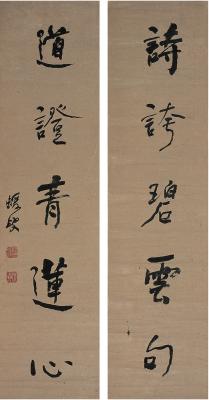 詩誇碧雲句
道證青蓮心